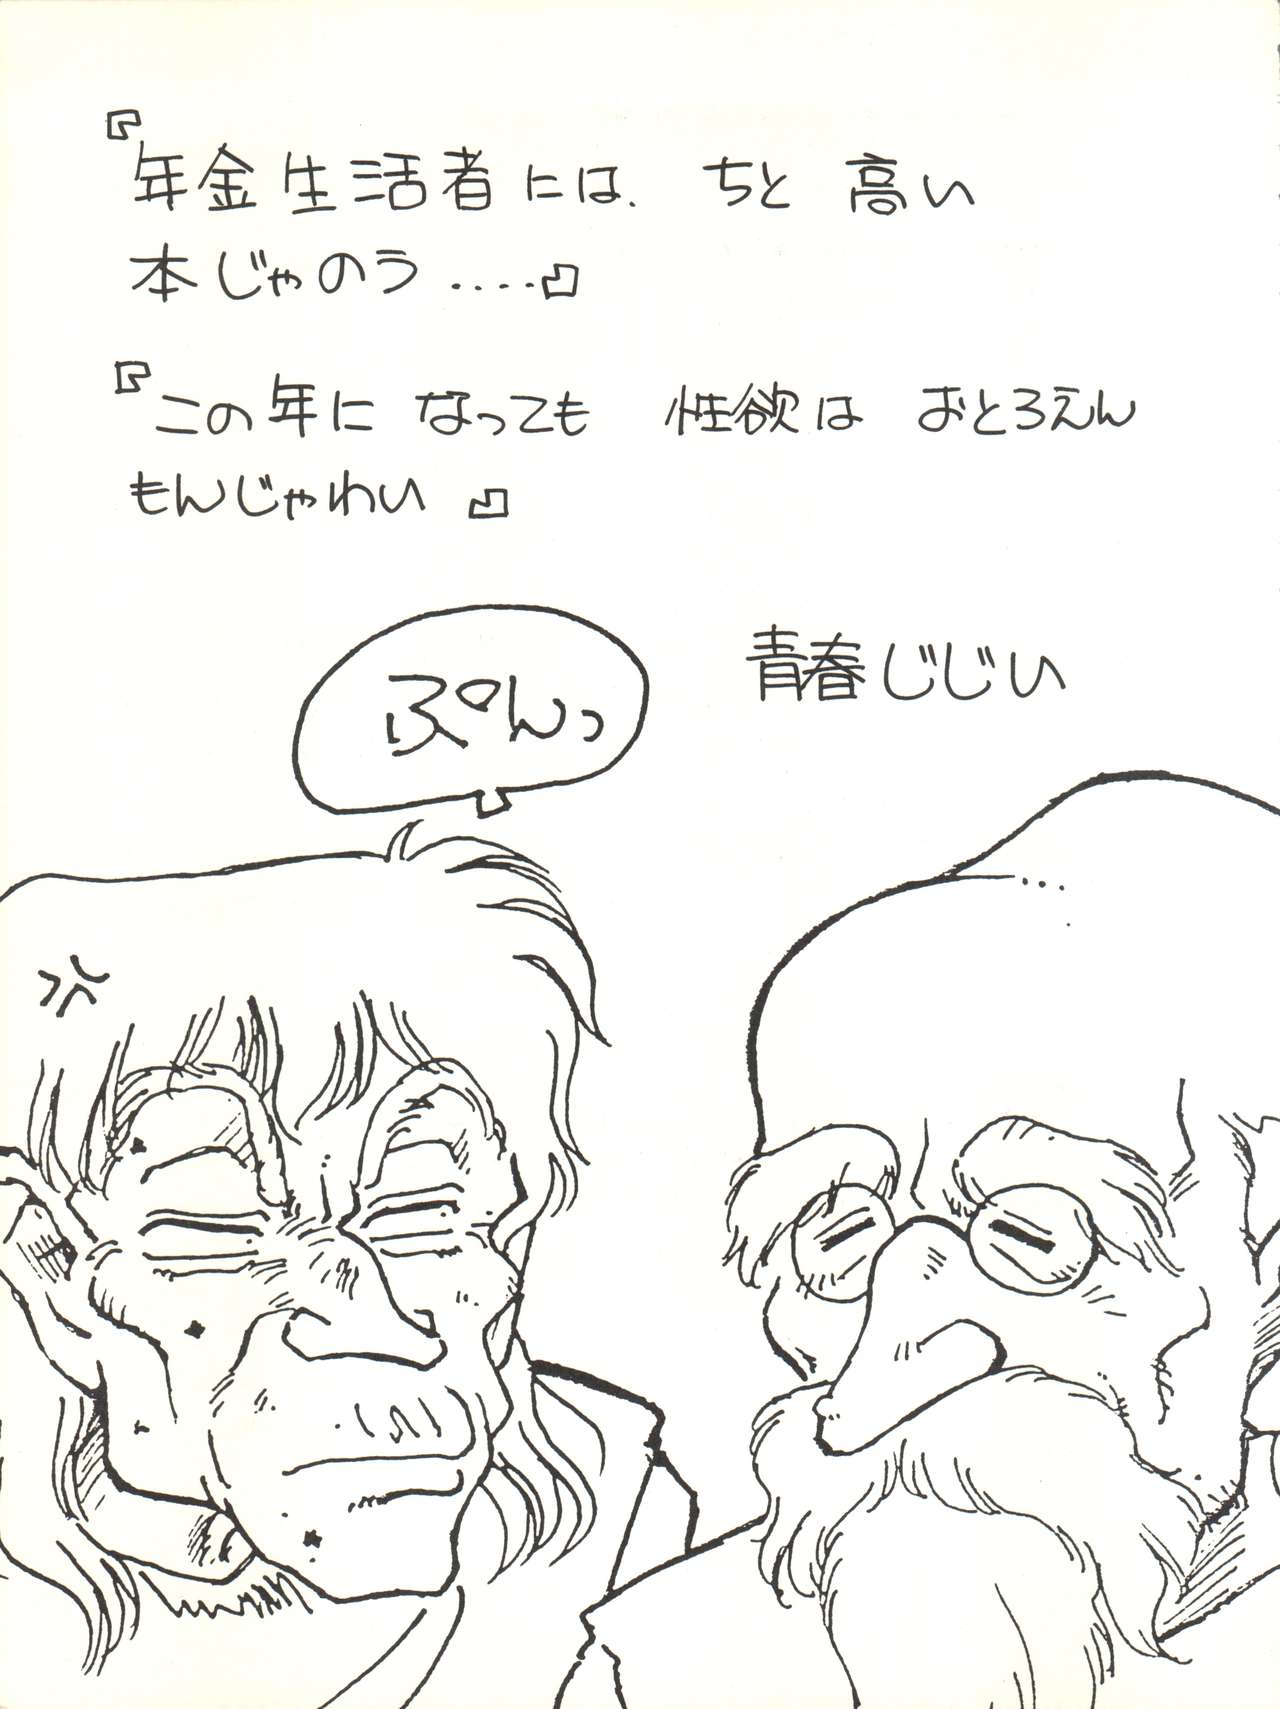 『年金生活者には、ちと高い
本じゃのう‥‥』
『この年になっても 性欲は おとろえん
もんじゃわい』
青春じじい
ぷんっ